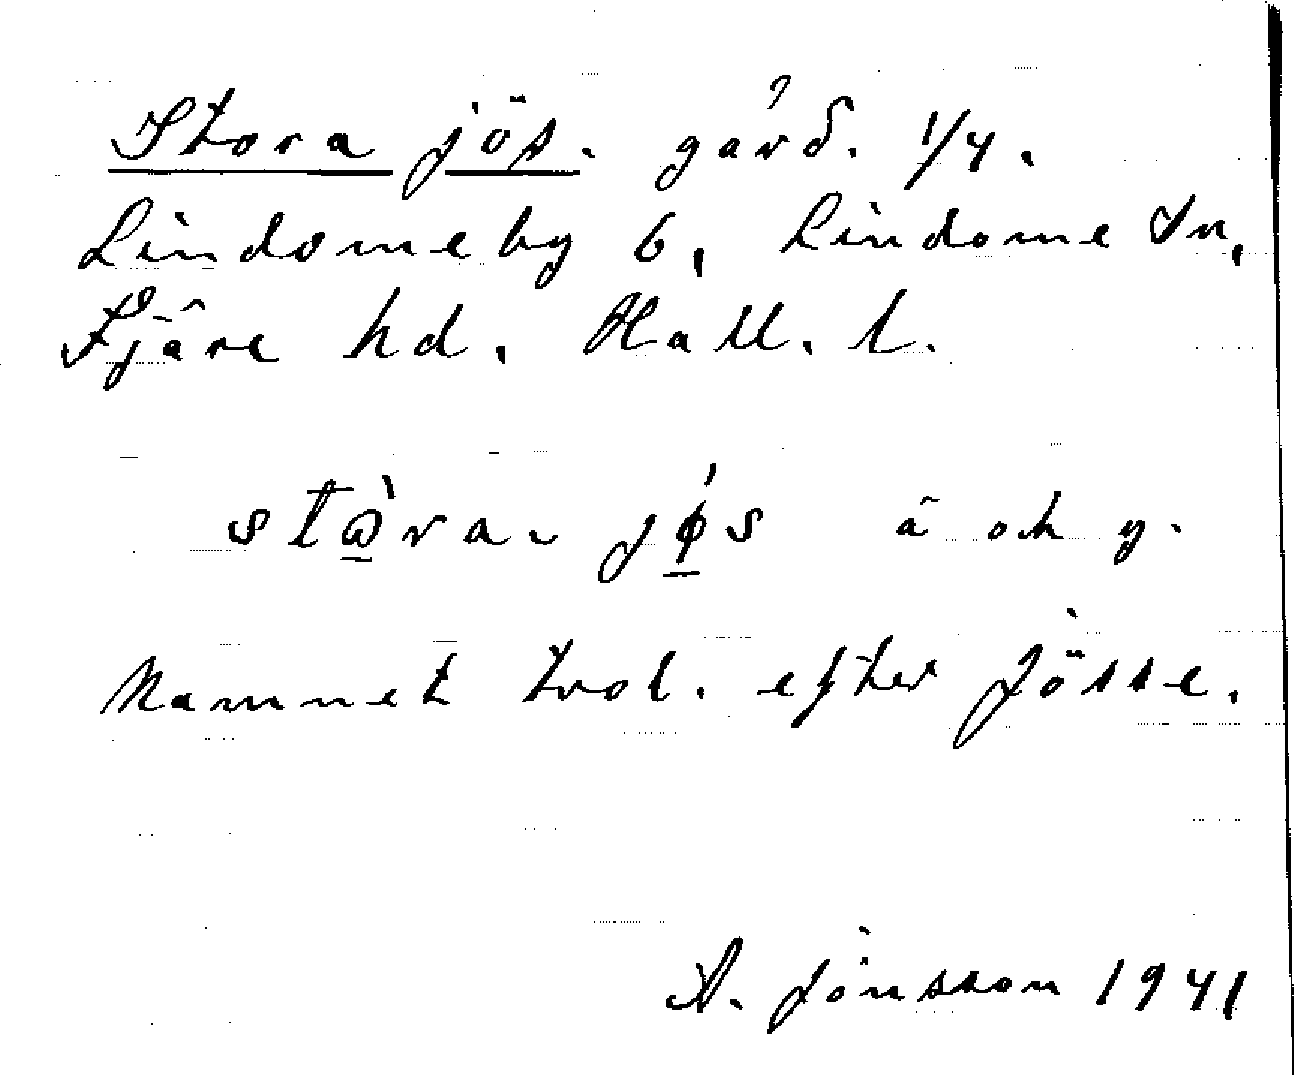 Stora jös. gård. 1/4.
Lindomeby 6, Lindome sn,
Fjäre hd. Hall. l.
stὼ̲ra. jǿ̲s ä och y.
Namnet trol. efter Jösse.
A. Jönsson 1941